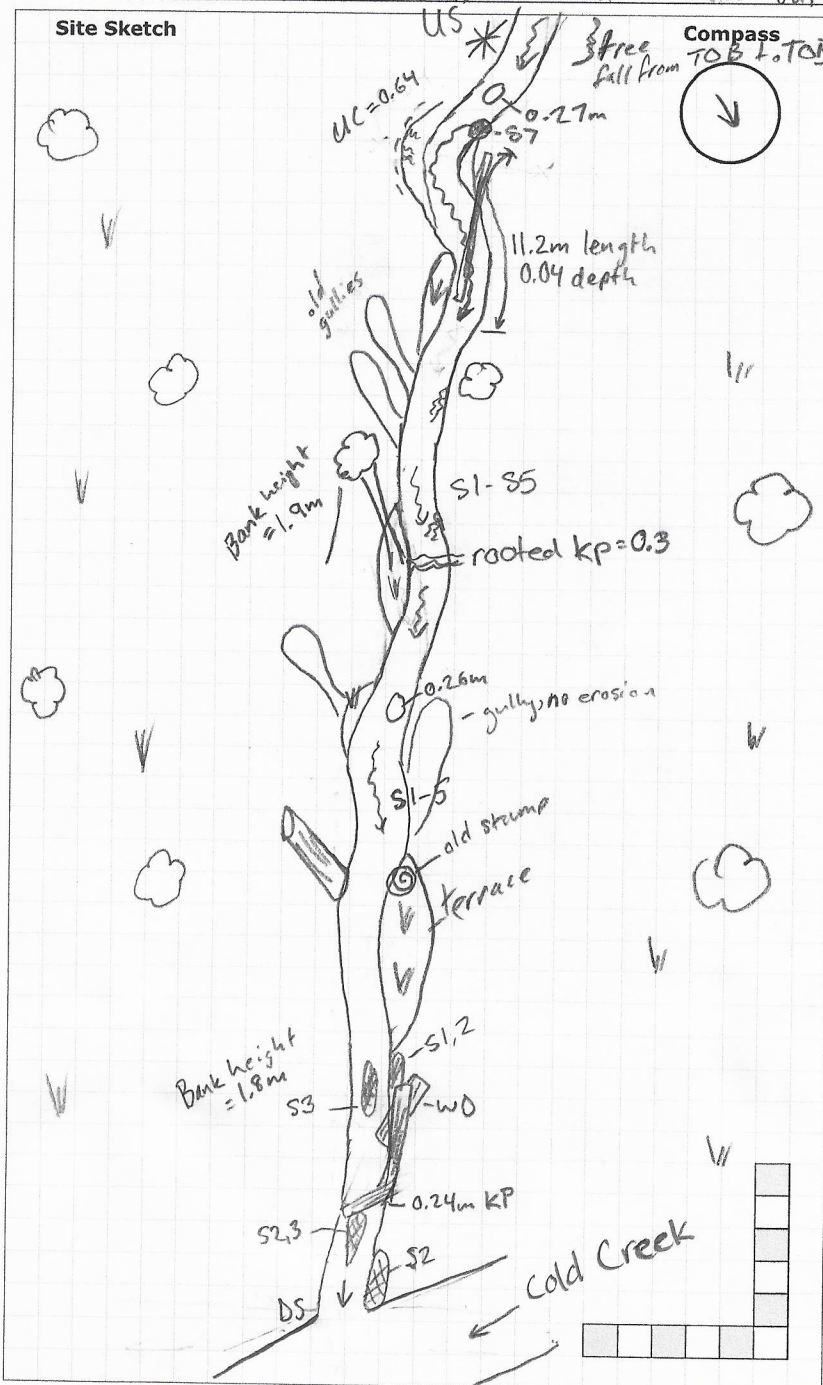 Site Sketch
Compass
US
tree
fall from TOB t. TOB
UC = 0.64
0.27m
S7
11.2m length
0.04 depth
old
gullies
Bank height
= 1.9m
S1-S5
rooted kp=0.3
0.26m
gully, no erosion
S1-5
old stump
terrace
S1,2
Bank height
= 1.8m
S3
WD
0.24m KP
S2,3
S2
Cold Creek
DS